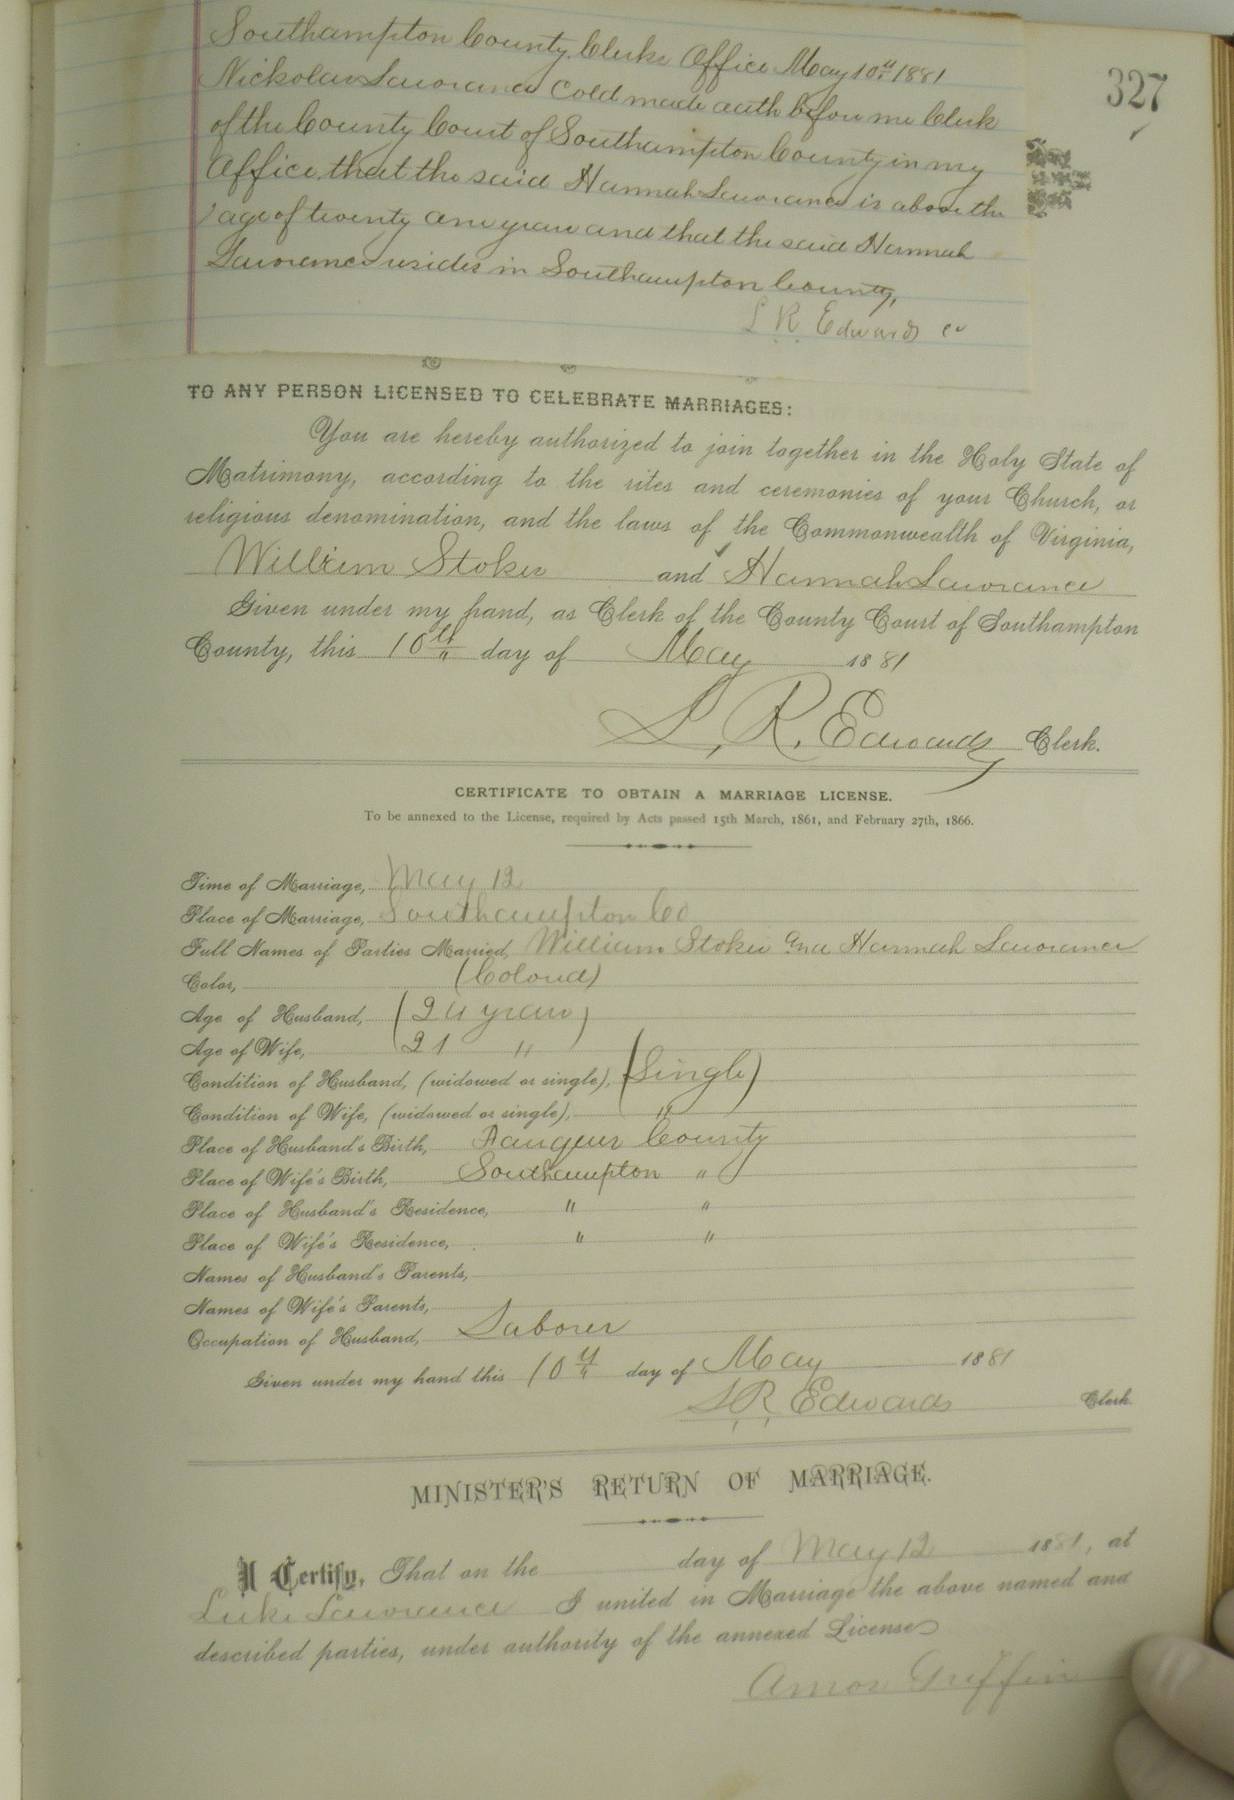 Southampton County Clerks Office May 10th 1881
327
Nickolas Lawrance Cold made oath before me Clerk
of the County Court of Southampton County in my
Office that the said Hannah Lawrance is above the
age of twenty one years and that the said Hannah
Lawrance resides in Southampton County,
L. R. Edwards
TO ANY PERSON LICENSED TO CELEBRATE MARRIAGES:
You are hereby authorized to join together in the Holy State of
Matrimony, according to the rites and ceremonies of your Church, or
religious denomination, and the laws of the Commonwealth of Virginia,
William Stokes and Hannah Lawrance
Given under my hand, as Clerk of the County Court of Southampton
County, this 10th day of May 1881
L. R. Edwards Clerk.
CERTIFICATE TO OBTAIN A MARRIAGE LICENSE.
To be annexed to the License, required by Acts passed 15th March, 1861, and February 27th, 1866.
Time of Marriage, May 12
Place of Marriage, Southampton Co
Full Names of Parties Married, William Stokes and Hannah Lawrance
Color, (Colored)
Age of Husband, (24 years)
Age of Wife, 21 "
Condition of Husband, (widowed or single), (Single)
Condition of Wife, (widowed or single), "
Place of Husband's Birth, Fauquier County
Place of Wife's Birth, Southampton "
Place of Husband's Residence, " "
Place of Wife's Residence, " "
Names of Husband's Parents,
Names of Wife's Parents,
Occupation of Husband, Laborer
Given under my hand this 10th day of May 1881
L. R. Edwards Clerk.
MINISTER'S RETURN OF MARRIAGE.
I Certify, That on the day of May 12 1881, at
Luke Lawrence I united in Marriage the above named and
described parties, under authority of the annexed License
Amos Griffin